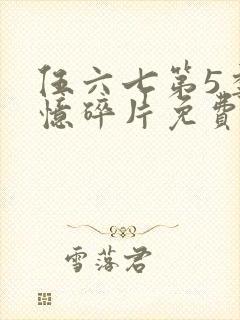 伍六七第5季
憶碎片免費
雪落君